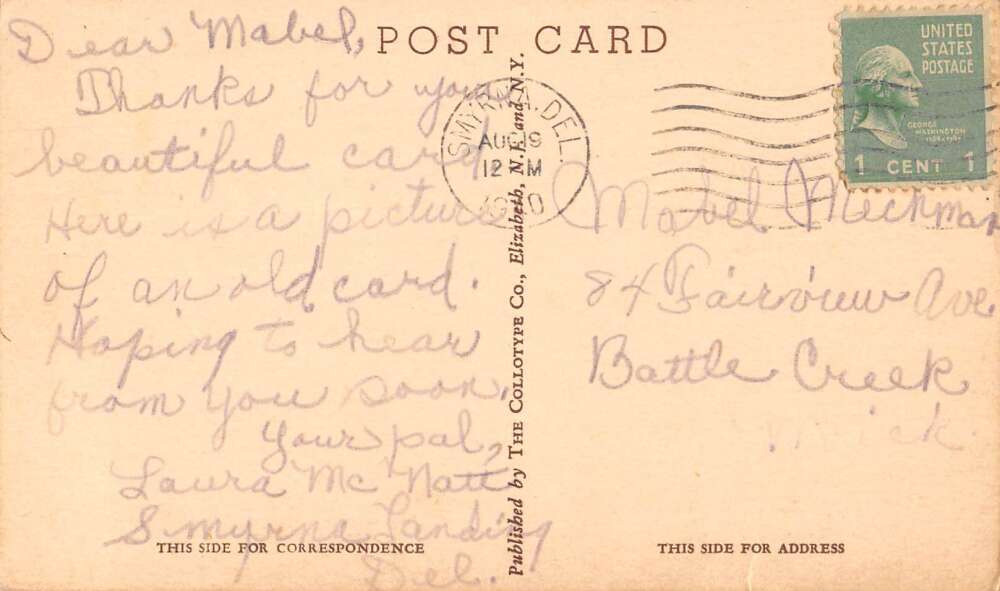 POST CARD
Dear Mabel,
Thanks for your
beautiful card.
Here is a picture
of an old card.
Hoping to hear
from you soon,
Your pal,
Laura Mc Natt
Smyrna Landing
Del.
THIS SIDE FOR CORRESPONDENCE
Published by THE COLLOTYPE CO., Elizabeth, N.J. and N.Y.
SMYRNA, DEL.
AUG 19
12 M
UNITED
STATES
POSTAGE
GEORGE
WASHINGTON
1 CENT 1
Mabel
84 Fairview Ave
Battle Creek
Mich.
THIS SIDE FOR ADDRESS